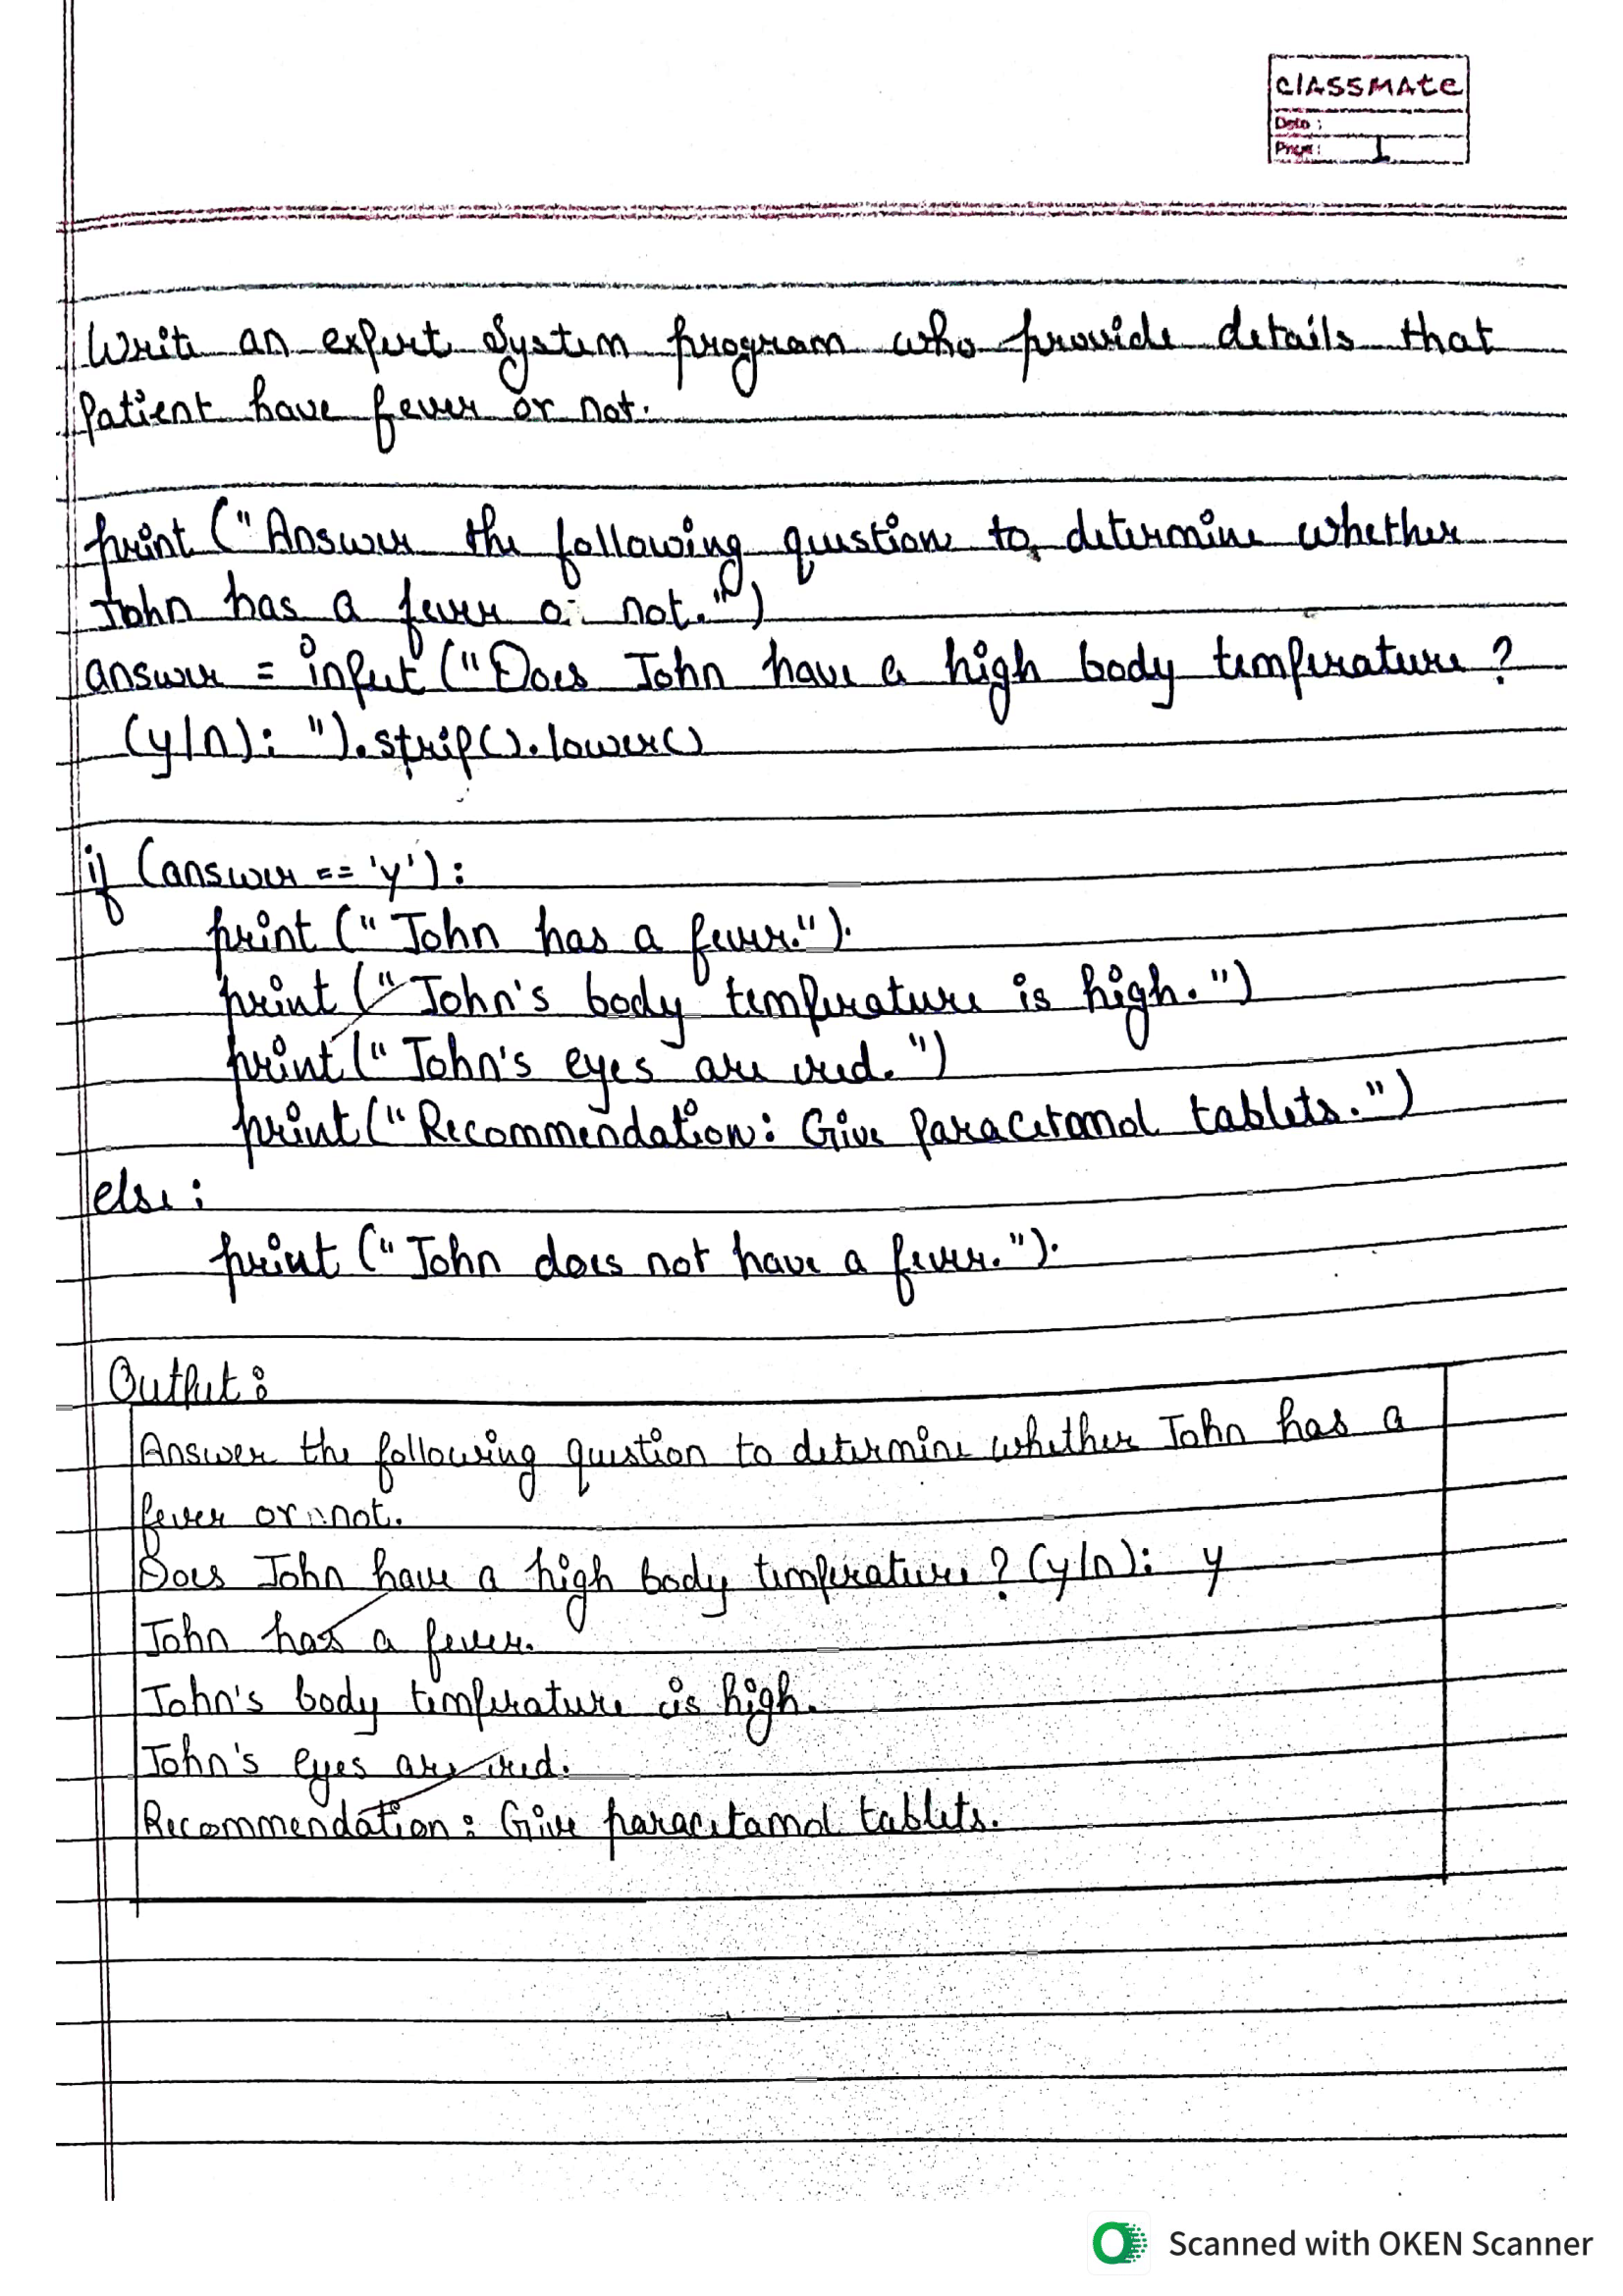 classmate
Date :
Page : 1
Write an expert system program who provide details that
Patient have fever or not.
print ("Answer the following question to determine whether
John has a fever or not.")
answer = input ("Does John have a high body temperature ?
(y/n): ").strip().lower()
if (answer == 'y'):
print ("John has a fever.").
print ("John's body temperature is high.")
print ("John's eyes are red.")
print ("Recommendation: Give Paracetamol tablets.")
else :
print ("John does not have a fever.").
Output :
Answer the following question to determine whether John has a
fever or not.
Does John have a high body temperature ? (y/n): y
John has a fever.
John's body temperature is high.
John's eyes are red.
Recommendation : Give paracetamol tablets.
Scanned with OKEN Scanner